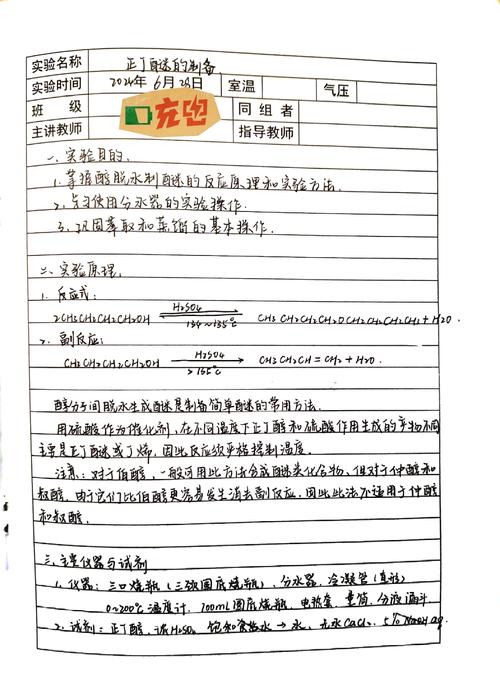 实验名称 正丁醚的制备
实验时间 2024年 6月28日 室温 气压
班级 同组者
充电
主讲教师 指导教师
一、实验目的:
1. 掌握醇脱水制醚的反应原理和实验方法.
2. 学习使用分水器的实验操作.
3. 巩固萃取和蒸馏的基本操作.
二、实验原理.
1. 反应式:
2CH3CH2CH2CH2OH H2SO4 134~135℃ CH3CH2CH2CH2OCH2CH2CH2CH3 + H2O.
2. 副反应:
CH3CH2CH2CH2OH H2SO4 >135℃ CH3CH2CH=CH2 + H2O.
醇分子间脱水生成醚是制备简单醚的常用方法.
用硫酸作为催化剂, 在不同温度下正丁醇和硫酸作用生成的产物不同
主要是正丁醚或丁烯, 因此反应须严格控制温度.
注意: 对于伯醇, 一般可用此方法合成醚类化合物, 但对于仲醇和
叔醇, 由于它们比伯醇更容易发生消去副反应, 因此此法不适用于仲醇
和叔醇.
三、主要仪器与试剂
1. 仪器: 三口烧瓶(三颈圆底烧瓶)、分水器、冷凝管(直形)
0~200℃温度计、100mL圆底烧瓶、电热套、量筒、分液漏斗
2. 试剂: 正丁醇、浓H2SO4、饱和食盐水→水、无水CaCl2、5% NaOH aq.